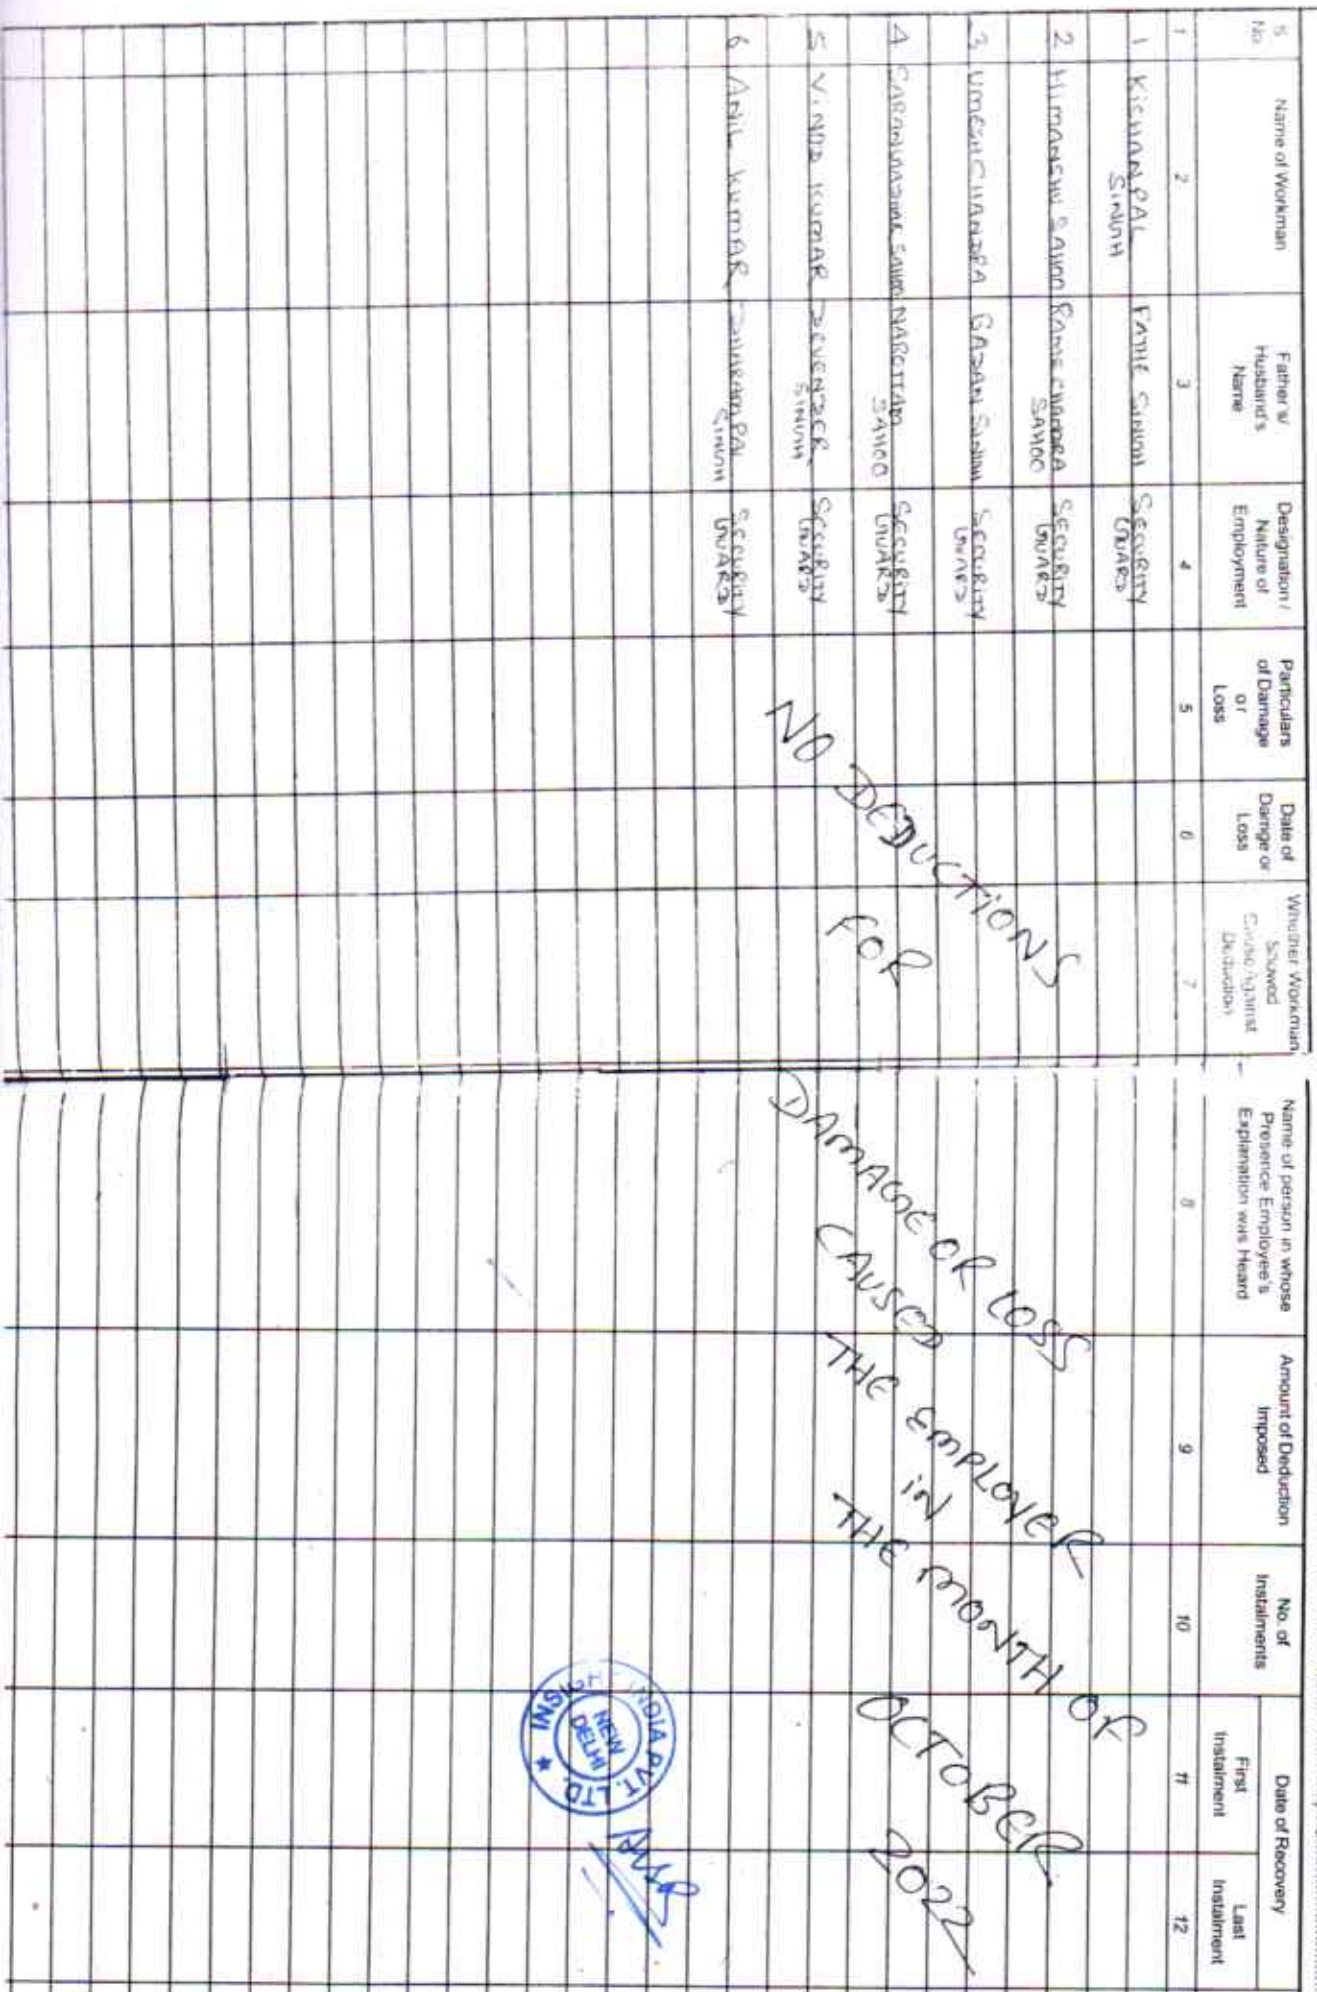 S No
Name of Workman
Father's/ Husband's Name
Designation / Nature of Employment
Particulars of Damage or Loss
Date of Damge or Loss
Whether Workman Showed Cause Against Deduction
Name of person in whose Presence Employee's Explanation was Heard
Amount of Deduction Imposed
No. of Instalments
Date of Recovery
First Instalment
Last Instalment
1 2 3 4 5 6 7 8 9 10 11 12
1 KISHANPAL SINGH FATHE SINGH SECURITY GUARD
2 HIMANSHU SAHOO RAME CHANDRA SAHOO SECURITY GUARD
3 UMESH CHANDRA BADAN SINGH SECURITY GUARD
4 NAROTTAM SAHOO SECURITY GUARD
5 VINOD KUMAR DEVENDER SINGH SECURITY GUARD
6 ANIL KUMAR DHARAMPAL SINGH SECURITY GUARD
NO DEDUCTIONS
FOR
DAMAGE OR LOSS
CAUSED
THE EMPLOYER
IN
THE MONTH OF
OCTOBER
2022
INDIA PVT. LTD. ★
NEW
DELHI